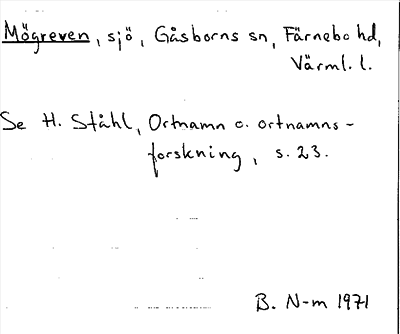 Mögreven, sjö, Gåsborns sn, Färnebo hd,
Värml. l.
Se H. Ståhl, Ortnamn o. ortnamns-
forskning, s. 23.
B. N-m 1971